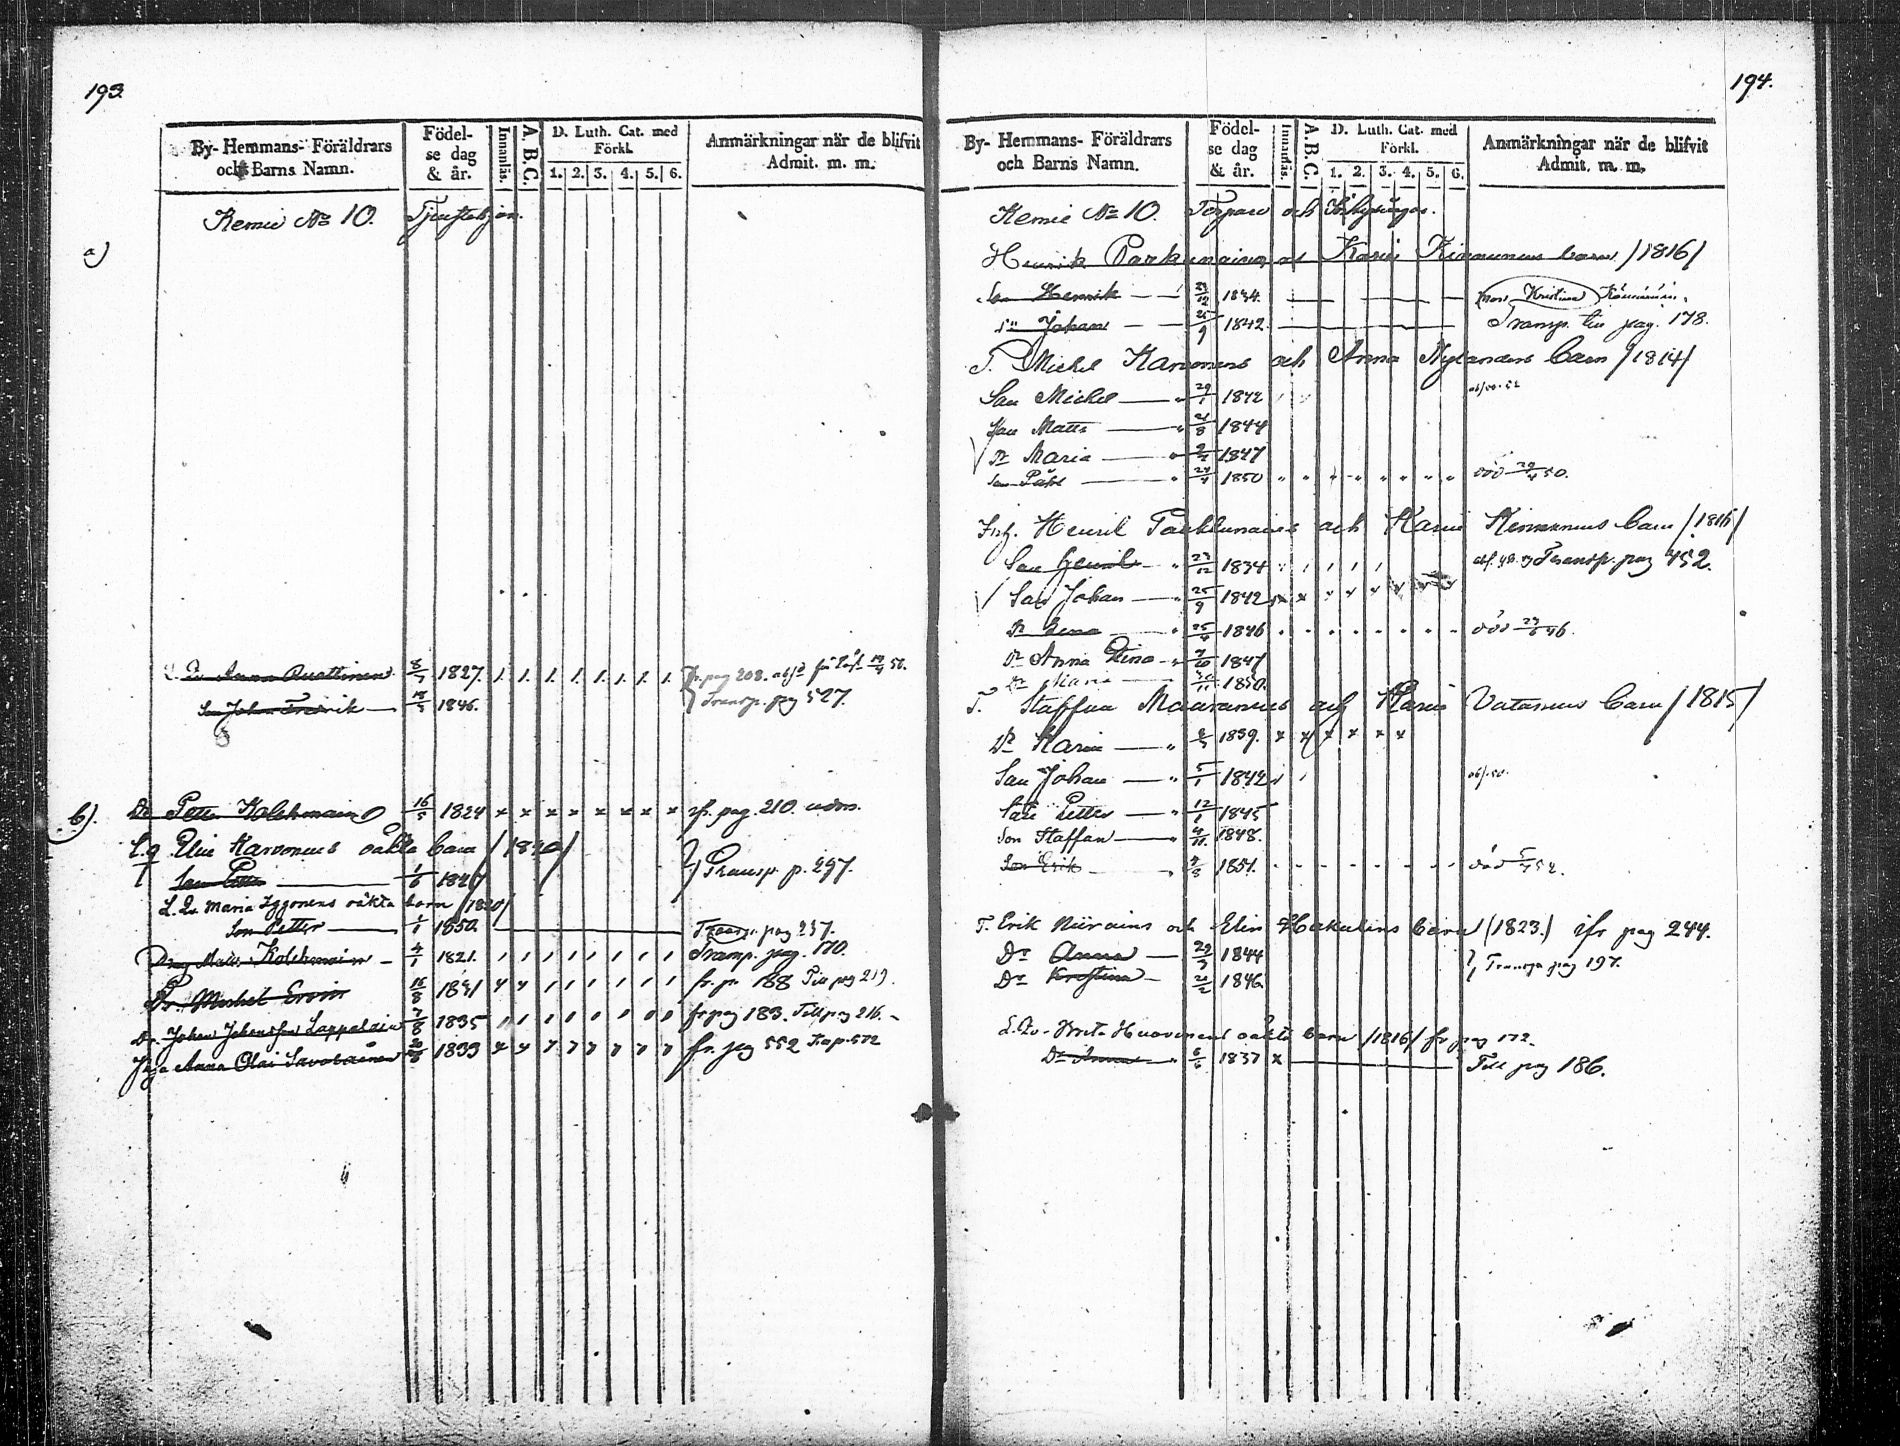 193.
By- Hemmans- Föräldrars och Barns Namn.
Födelse dag & år.
Innanläs.
A.B.C.
D. Luth. Cat. med Förkl.
1. 2. 3. 4. 5. 6.
Anmärkningar när de blifvit Admit. m. m.
Kemie No 10. Tjenstehjon.
a)
Anna 8/7 1827. 1. 1. 1. 1. 1. 1. 1. 1. fr. pag 208.
Son Johan Fredrik 1846. Transp. pag 527.
b). Dr Petter Kolehmain 16/5 1824 x x x x x x x x ifr. pag. 210. ndrs.
L.q. Elin Karvonens oäkta barn
Son Petter 1/6 1847 Transp. p. 297.
L. Qv. Maria Iggonens oäkta barn /1820/
Son Petter 1/1 1850. Transp. pag 237.
Dräng Matts Kolehmain 4/1 1821. Transp. pag. 170.
Dr. Michel Ervin 1841 fr. p. 188 Till pag 219.
Dr. Johan Johansson Lappalain 7/8 1835 fr pag 183. Till pag 216.
Anna Olai Savolainen 1833 fr. pag 552
194.
By- Hemmans- Föräldrars och Barns Namn.
Födelse dag & år.
Innanläs.
A.B.C.
D. Luth. Cat. med Förkl.
1. 2. 3. 4. 5. 6.
Anmärkningar när de blifvit Admit. m. m.
Kemie No 10. Torpare och Inhysingar.
Henrik Karin Kinnunens barn /1816/
Son Henrik 23/12 1834. Kristina
Sn Johan 25/9 1842. Transp. till pag. 178.
T. Michel Karvonens och Anna Nylanders barn /1814/
Son Michel 29/1 1842
Son Matts 1844
Dr Maria 1847
Son Påhl 1850 död 50.
Inh. Henrik och Karin Kinnunens barn /1816/
Son Henrik 23/12 1834 Transp. pag 452.
Son Johan 25/9 1842
Dr Lena 1846 död 46.
Dr Anna Lena 1847
Dr Maria 1850.
T. Staffan och Karin Vatanens barn /1815/
Dr Karin 1839. x x x x x x
Son Johan 5/1 1842
Son Petter 12/1 1845
Son Staffan 1848.
Son Erik 1851. död 52.
T. Erik Niirains och Elin Hakulins barn (1823.) ifr pag 244.
Dr Anna 1844 Transp pag 197.
Dr Kristina 1846
L. Qv. Brita Huovinens oäkta barn /1816/ fr pag 172.
Dr Anna 1837 x Till pag 186.